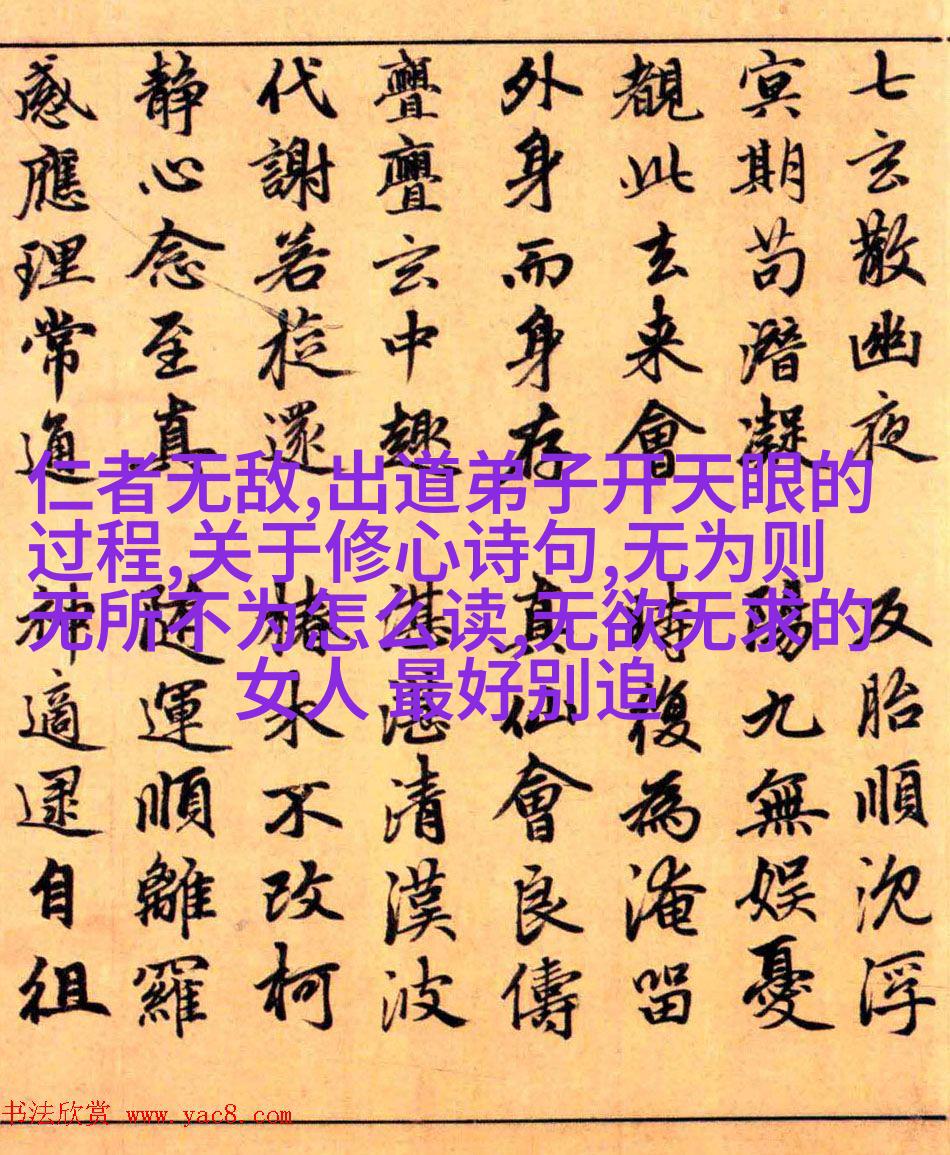 七玄散幽夜 反胎順沈浮
冥期苟潛凝 陽九無娱憂
覩此去来會 時復為淹留
外身而身存 真仙會良儔
亹亹玄中趣 湛湛清漢波
代謝若旋還 椿木不改柯
静心念至真 隨運順離羅
感應理常通 神適逮自徂
仁者无敌,出道弟子开天眼的
过程,关于修心诗句,无为则
无所不为怎么读,无欲无求的
女人 最好别追
书法欣赏 www.yac8.com